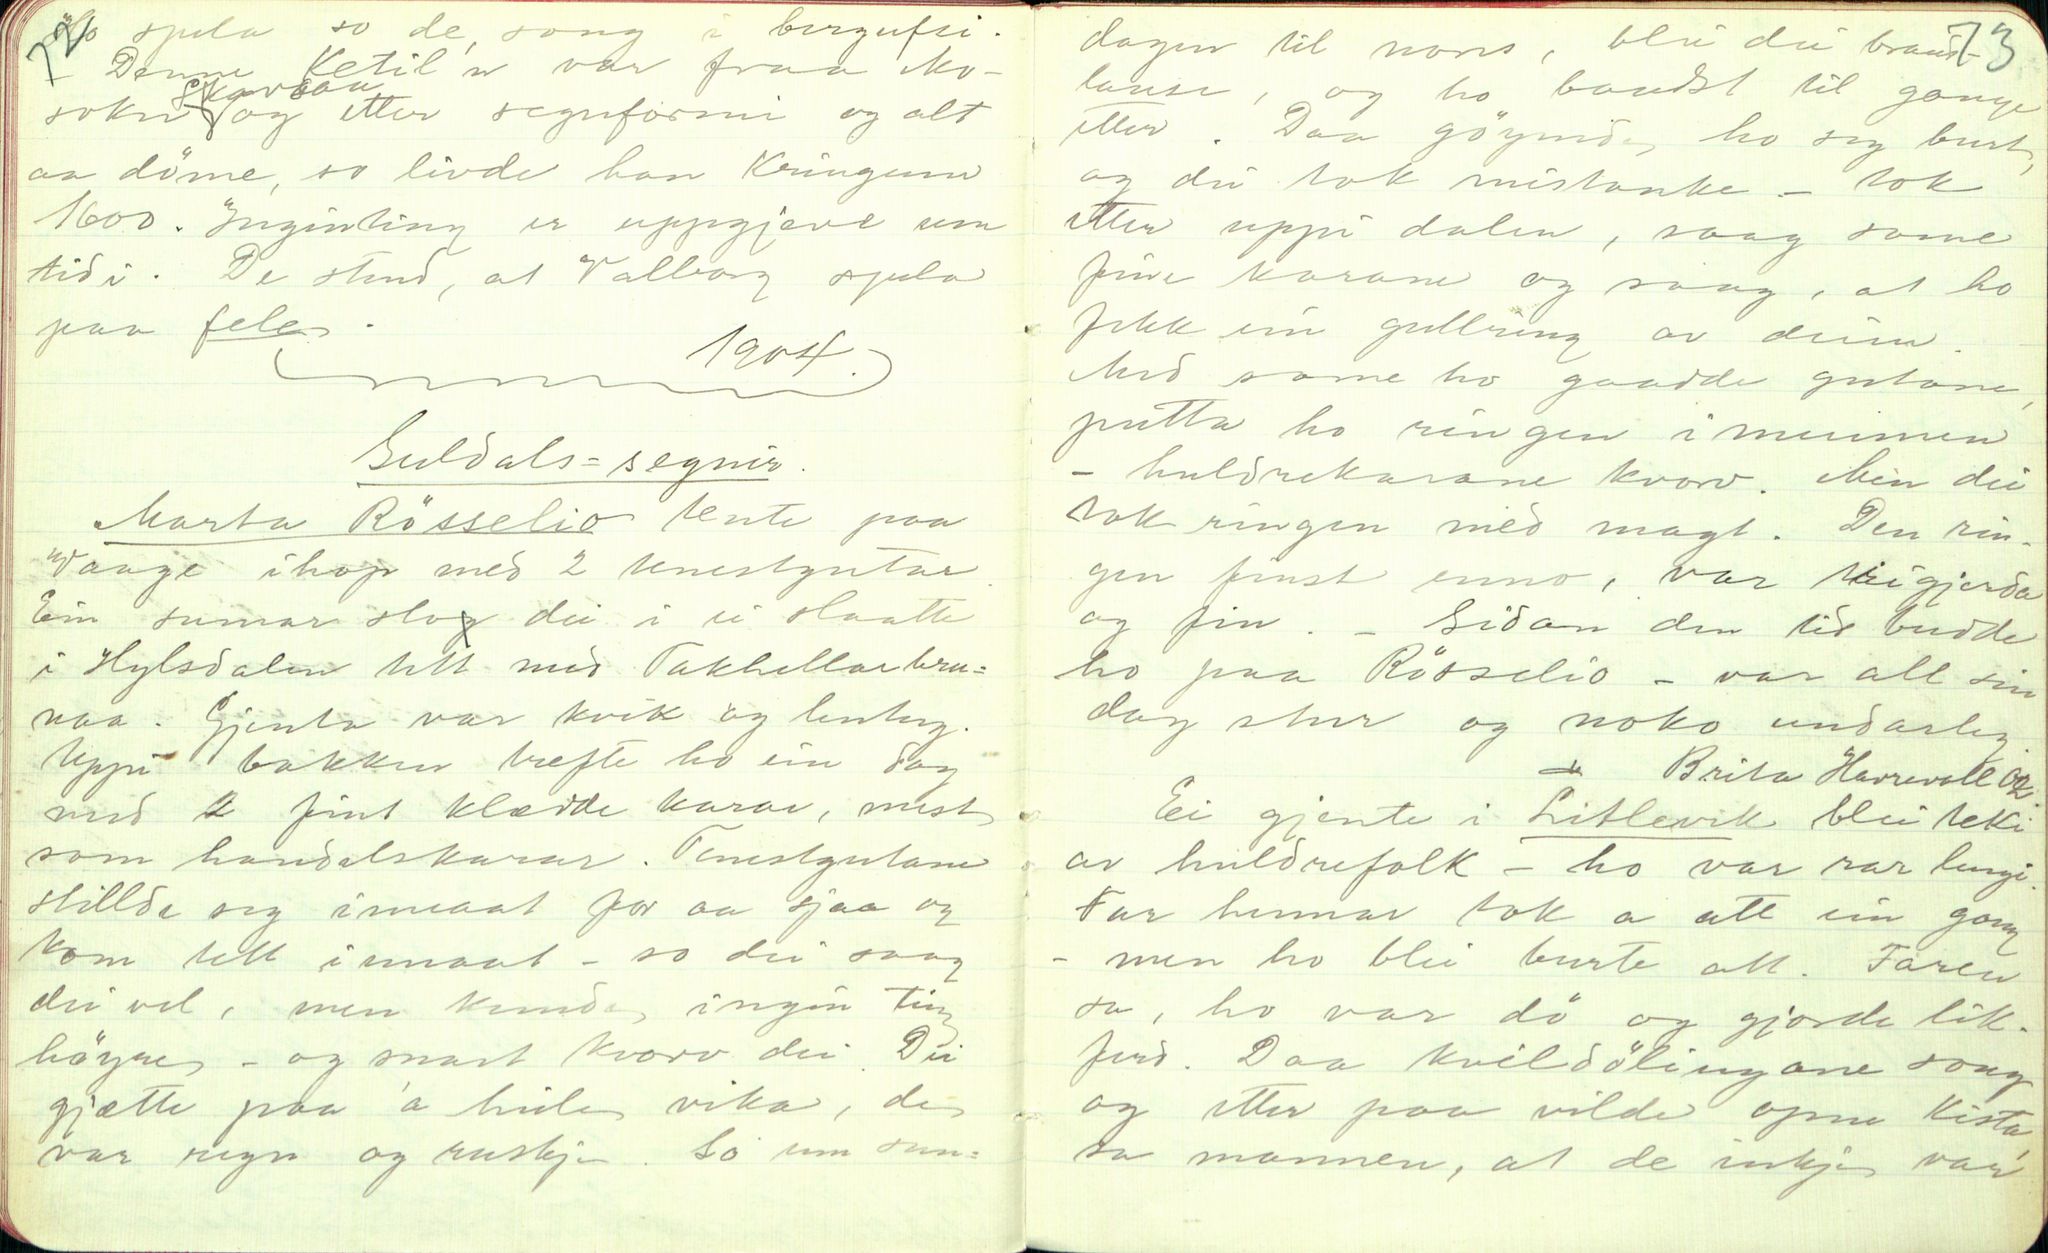 72
Ho spela so de song i bergufsi.
- Denne Ketil'n var fraa Mo-
Skarvaa
sokn og etter segnformi og alt
aa döme, so livde han kringum
1600. Ingenting er uppgjeve um
tidi. De stend, at Valborg spela
paa fele.
1904.
Suldals=segnir.
Marta Rösselio tente paa
Vaage ihop med 2 tenestgutar.
Ein sumar slog dei i ei slaatte
i Hylsdalen tett med Takhellarbru=
naa. Gjenta var kvik og lenteg.
Uppi bakken trefte ho ein dag
med 2 fint klædde karar, mest
som handelskarar. Tenestgutane
stillde seg imeaat for aa sjaa og
kom tett inmaat - so dei saag
dei vel, men kunde ingen ting
höyre - og snart kvarv dei. Dei
gjætte paa a heile vika, de
var regn og ruskje. So um sun=
73
dagen til nons, blei dei braud-
lause, og ho baudst til gange
etter. Daa göymde ho seg burt,
og dei tok mistanke - tok
etter uppi dalen, saag same
fine karane og saag, at ho
fekk ein gullring av deim.
Med same ho gaadde gutane,
putta ho ringen i munnen
- huldrekarane kvarv. Men dei
tok ringen med magt. Den rin-
gen finst enno, var trigjerda
og fin. - Sidan den tid budde
ho paa Rösselio - var all sin
dag stur og noko underleg.
Brita Harrevoll 02.
Ei gjente i Litlevik blei teki
av huldrefolk - ho var rar lengi.
Far hennar tok a att ein gong
- men ho blei burte att. Faren
sa, ho var dö og gjorde lik-
ferd. Daa kvildölingane song
og etter paa vilde opne kista,
sa mannen, at de inkje var